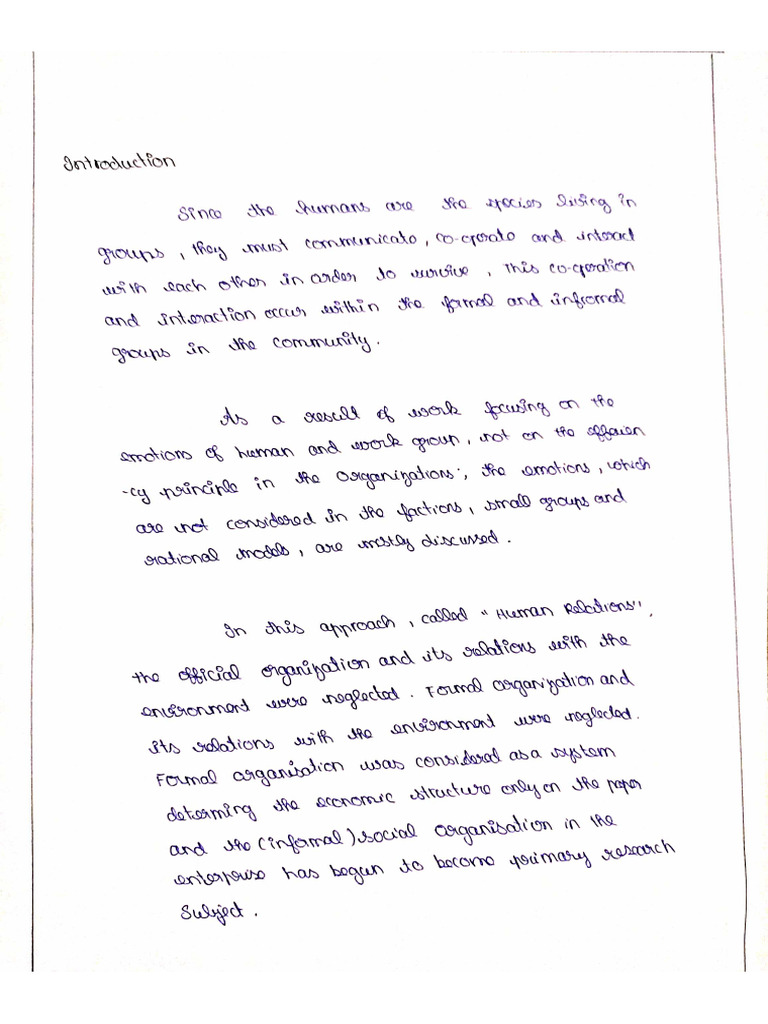 Introduction
Since the humans are the species living in
groups, they must communicate, co-operate and interact
with each other in order to survive, This co-operation
and interaction occur within the formal and infromal
groups in the community.
As a result of work focusing on the
emotions of human and work group, not on the
-cy principle in the organizations, the emotions, which
are not considered in the factions, small groups and
rational models, are mostly discussed.
In this approach, called "Human Relations",
the official organization and its relations with the
environment were neglected. Formal organization and
its relations with the environment were neglected.
Formal organisation was considered as a system
determing the economic structure only on the paper
and the (informal) social organisation in the
enterprise has begun to become primary research
Subject.